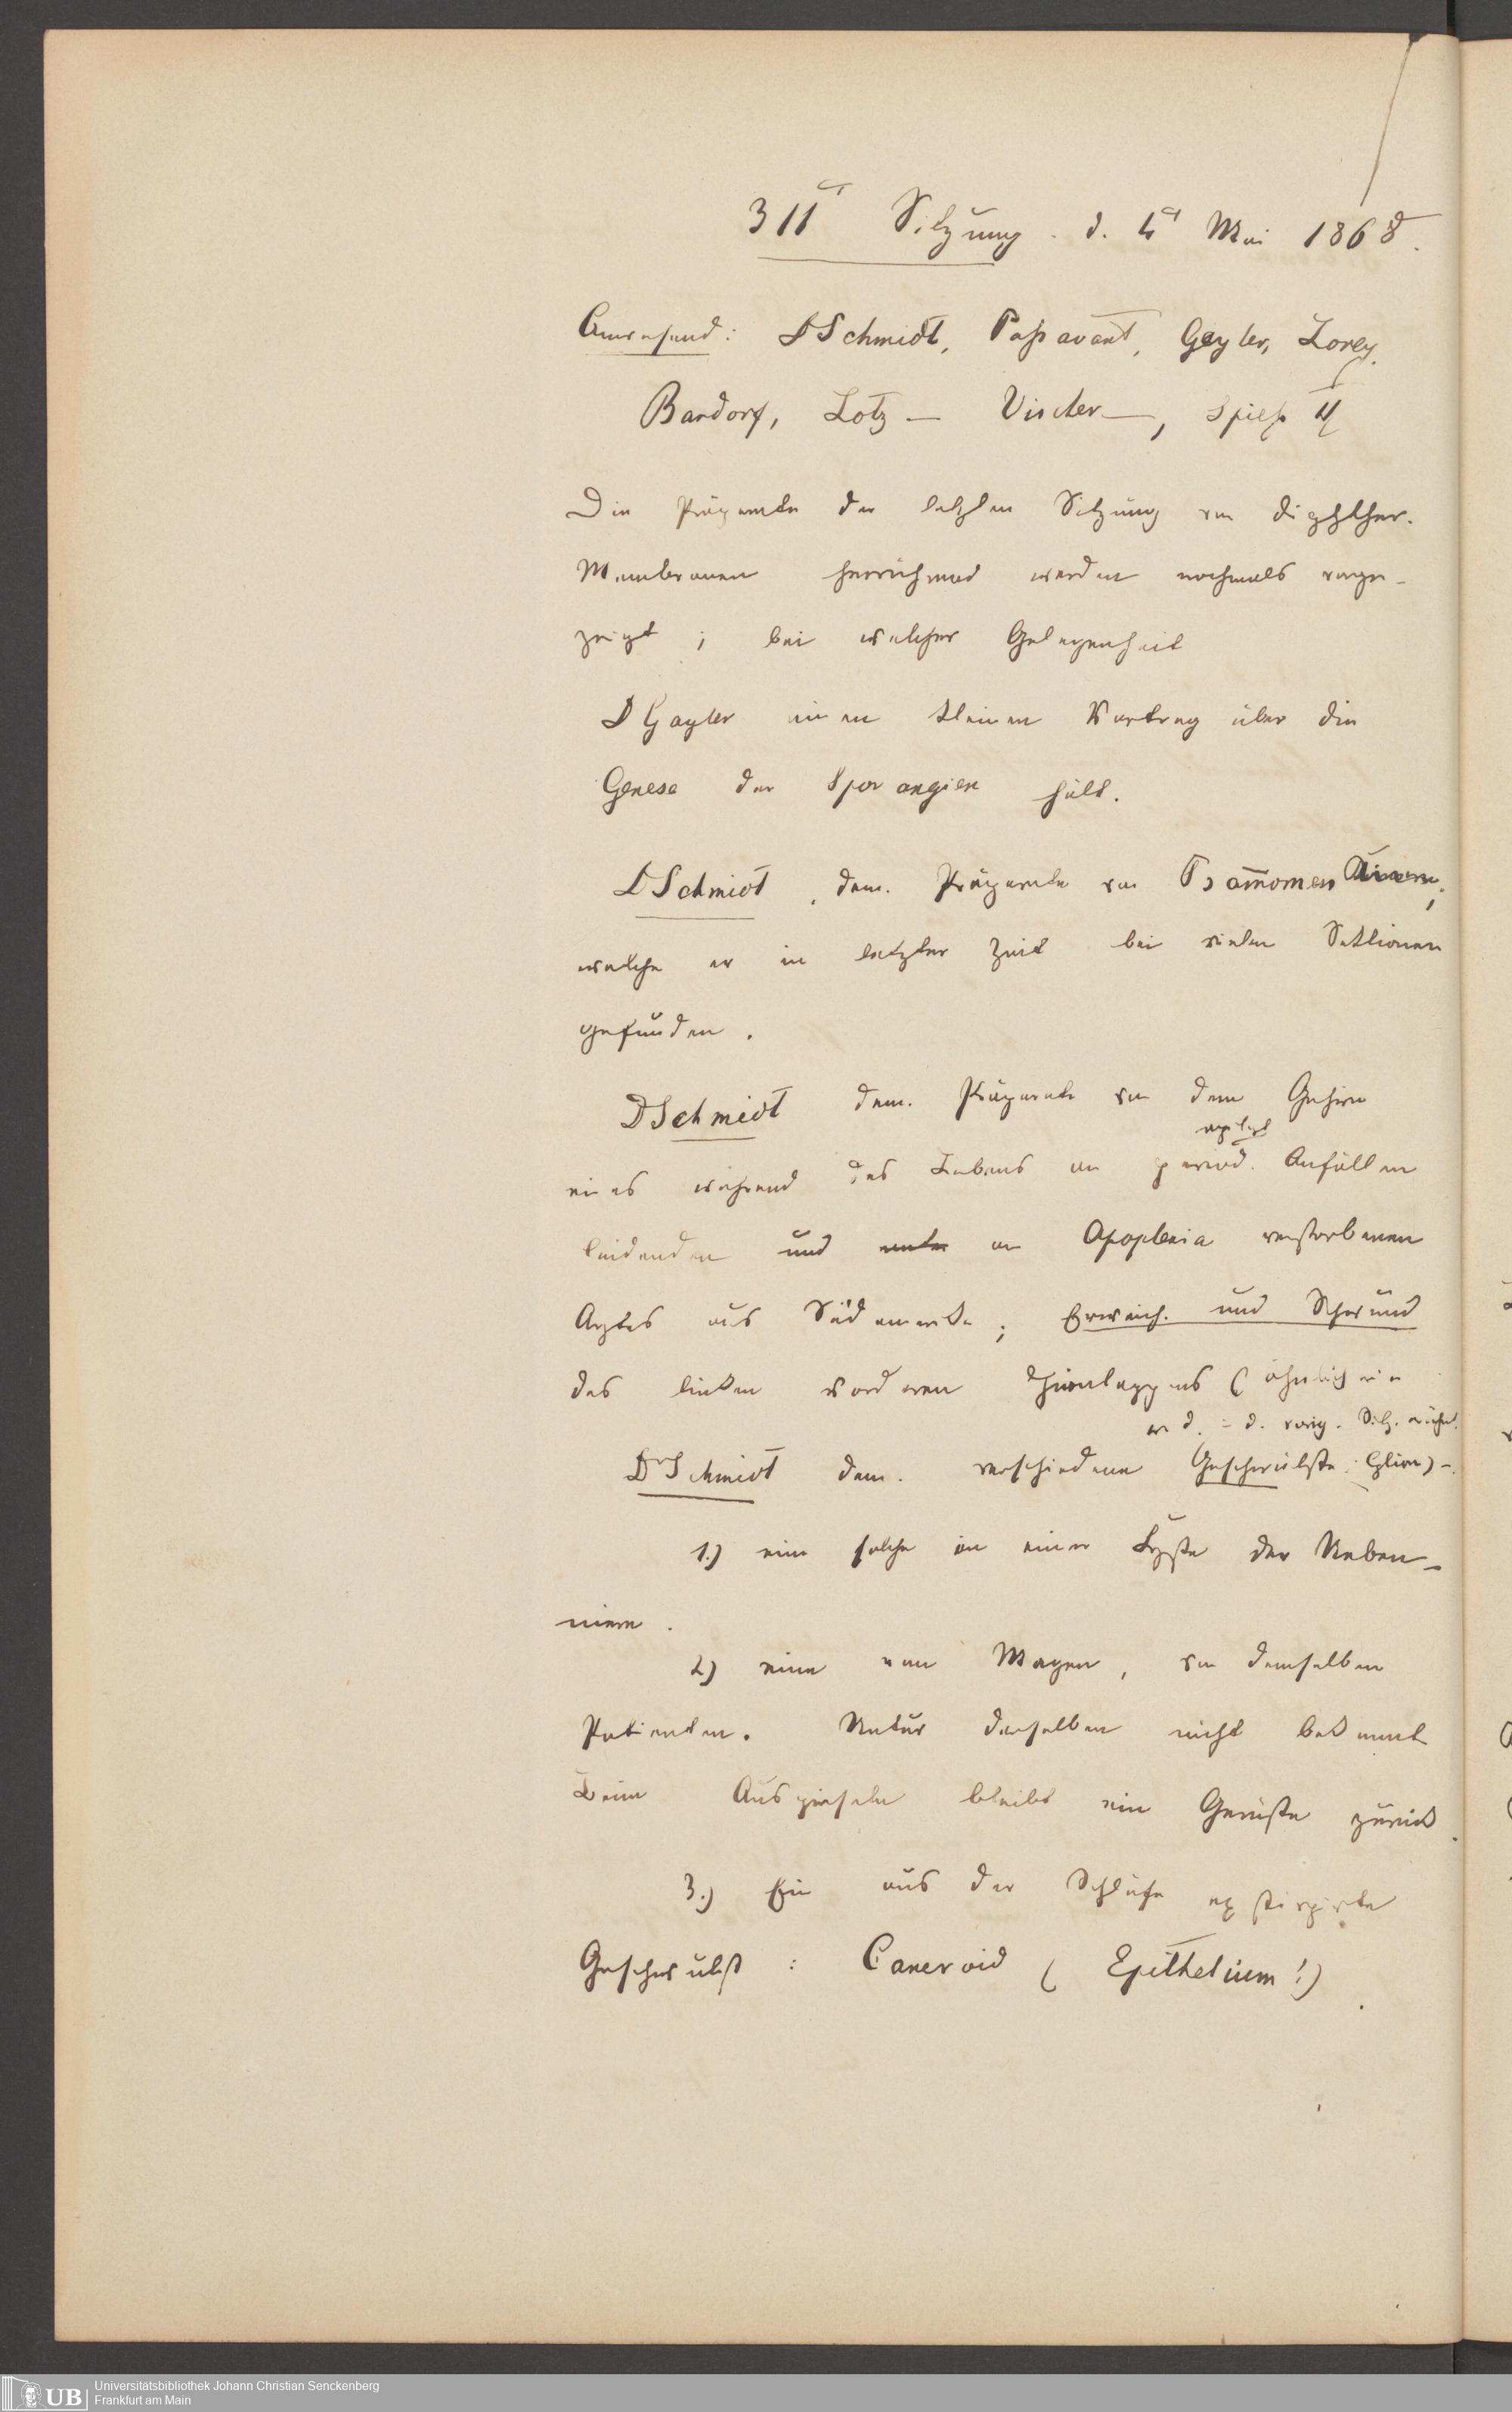 311te Sitzung. d. 4ten Mai 1868.
Anwesend: D Schmidt, Passavant, Geyler, Lorey,
Bardorf, Lotz – Vischer –, Spiess II
Die Präparate der letzten Sitzung von diphther.
Membranen herrührend werden nochmals vorge-
zeigt; bei welcher Gelegenheit
D Geyler einen kleinen Vortrag über die
Genese der Sporangien hält.
D Schmidt, dem. Präparate von Psam̄omen
welche er in letzter Zeit bei vielen Sektionen
gefunden.
D Schmidt dem. Präparate von dem Gehirn
epilept
eines während des Lebens an period. Anfällen
leidenden und an Apoplexia verstorbenen
Arztes aus Südamerika; Erweich. und Schwund
des linken vorderen Hirnlappens (ähnlich wie
d. vorig. Sitz.
Dr Schmidt dem. verschiedene Geschwülste: Gliom) –
1.) eine solche in einer Cyste der Neben-
niere.
2) eine vom Magen, von demselben
Patienten. Natur derselben nicht bekannt
Beim Auspinseln bleibt ein Gerüste zurück.
3.) Ein aus der Schläfe exstirpirte
Geschwulst: Cancroid (Epithelium!)
UB Universitätsbibliothek Johann Christian Senckenberg
Frankfurt am Main